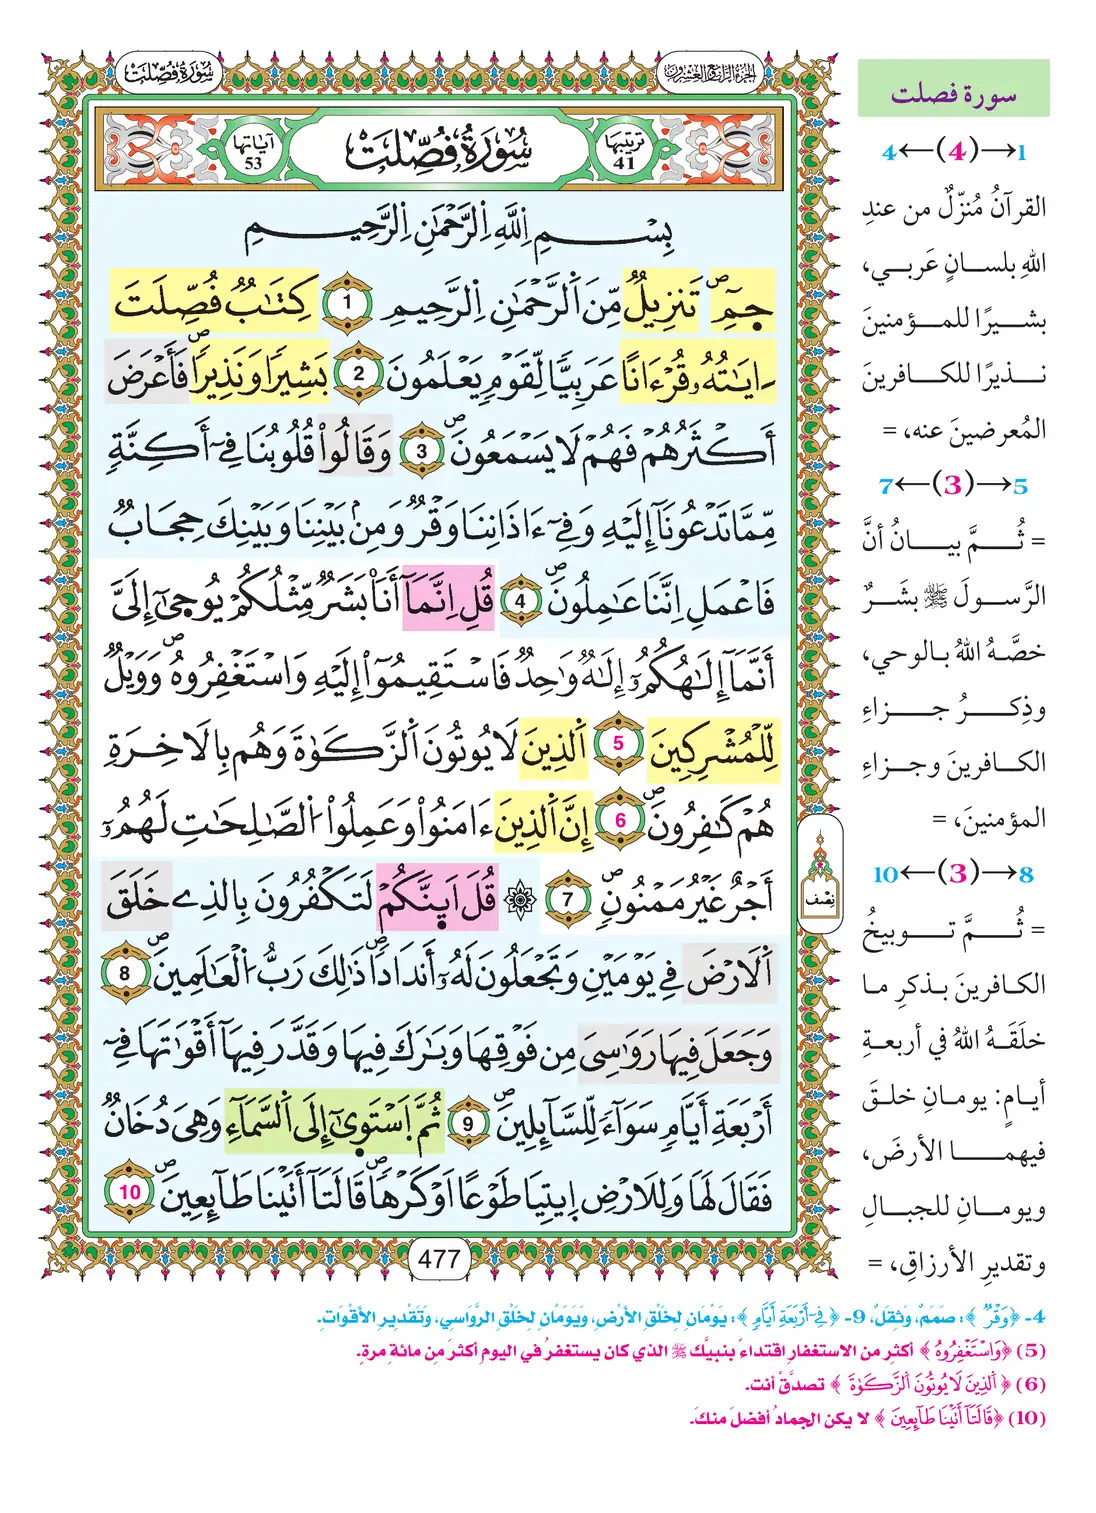 الجزء الرابع والعشرون
سورة فصلت
ترتيبها 41
سُورَةُ فُصِّلَتْ
آياتها 53
بِسْمِ اِللَّهِ اِلرَّحْمَٰنِ اِلرَّحِيمِ
جمِٓ تَنزِيلٌ مِّنَ اَلرَّحْمَٰنِ اِلرَّحِيمِ 1 كِتَٰبٌ فُصِّلَتَ
ـ ايَٰتُهُۥ قُرْءَانًا عَرَبِيًّا لِّقَوْمٍ يَعْلَمُونَ 2 بَشِيرًا وَنَذِيرًا فَأَعْرَضَ
أَكْثَرُهُمْ فَهُمْ لَا يَسْمَعُونَ 3 وَقَالُواْ قُلُوبُنَا فِےٓ أَكِنَّةٍ
مِّمَّا تَدْعُونَآ إِلَيْهِ وَفِےٓ ءَاذَانِنَا وَقْرٌ وَمِنۢ بَيْنِنَا وَبَيْنِكَ حِجَابٌ
فَاعْمَلِ اِنَّنَا عَٰمِلُونَ 4 قُلِ اِنَّمَآ أَنَا۠ بَشَرٌ مِّثْلُكُمْ يُوحَىٰٓ إِلَىَّ
أَنَّمَآ إِلَٰهُكُمُۥٓ إِلَٰهٌ وَٰحِدٌ فَاسْتَقِيمُوٓاْ إِلَيْهِ وَاسْتَغْفِرُوهُ وَوَيْلٌ
لِّلْمُشْرِكِينَ 5 اَلذِينَ لَا يُوتُونَ اَلزَّكَوٰةَ وَهُم بِالَاخِرَةِ
هُمْ كَٰفِرُونَ 6 إِنَّ اَلذِينَ ءَامَنُواْ وَعَمِلُواْ اُلصَّٰلِحَٰتِ لَهُمُۥٓ
أَجْرٌ غَيْرُ مَمْنُونٍ 7 ۞ قُلَ اَىِٕنَّكُمْ لَتَكْفُرُونَ بِالذِے خَلَقَ
اَلَارْضَ فِے يَوْمَيْنِ وَتَجْعَلُونَ لَهُۥٓ أَندَادًا ذَٰلِكَ رَبُّ اُلْعَٰلَمِينَ 8
وَجَعَلَ فِيهَا رَوَٰسِىَ مِن فَوْقِهَا وَبَٰرَكَ فِيهَا وَقَدَّرَ فِيهَآ أَقْوَٰتَهَا فِےٓ
أَرْبَعَةِ أَيَّامٍ سَوَآءً لِّلسَّآئِلِينَ 9 ثُمَّ اَسْتَوَىٰٓ إِلَى اَلسَّمَآءِ وَهِىَ دُخَانٌ
فَقَالَ لَهَا وَلِلَارْضِ اِيتِيَا طَوْعًا اَوْ كَرْهًا قَالَتَآ أَتَيْنَا طَآئِعِينَ 10
نِصْف
477
سورة فصلت
1→(4)←4
القرآنُ مُنزَّلٌ من عندِ
اللهِ بلسانٍ عَربي،
بشيرًا للمؤمنينَ
نذيرًا للكافرينَ
المُعرضينَ عنه، =
5→(3)←7
= ثُمَّ بيانُ أنَّ
الرَّسولَ ﷺ بشَرٌ
خصَّهُ اللهُ بالوحي،
وذِكرُ جزاءِ
الكافرينَ وجزاءِ
المؤمنينَ، =
8→(3)←10
= ثُمَّ توبيخُ
الكافرينَ بذكرِ ما
خلَقَهُ اللهُ في أربعةِ
أيامٍ: يومانِ خلقَ
فيهما الأرضَ،
ويومانِ للجبالِ
وتقديرِ الأرزاقِ، =
4- ﴿وَقْرٌ﴾: صَمَمٌ، وَثِقَلٌ، 9- ﴿فِےٓ أَرْبَعَةِ أَيَّامٍ﴾: يَوْمَانِ لِخَلْقِ الأَرْضِ، وَيَوْمَانِ لِخَلْقِ الرَّوَاسِي، وَتَقْدِيرِ الأَقْوَاتِ.
(5) ﴿وَاسْتَغْفِرُوهُ﴾ أكثِر من الاستغفارِ اقتداءً بنبيِّك ﷺ الذي كان يستغفرُ في اليومِ أكثرَ مِن مائةِ مرةٍ.
(6) ﴿اَلذِينَ لَا يُوتُونَ اَلزَّكَوٰةَ﴾ تصدَّقْ أنت.
(10) ﴿قَالَتَآ أَتَيْنَا طَآئِعِينَ﴾ لا يكن الجمادُ أفضلَ منكَ.